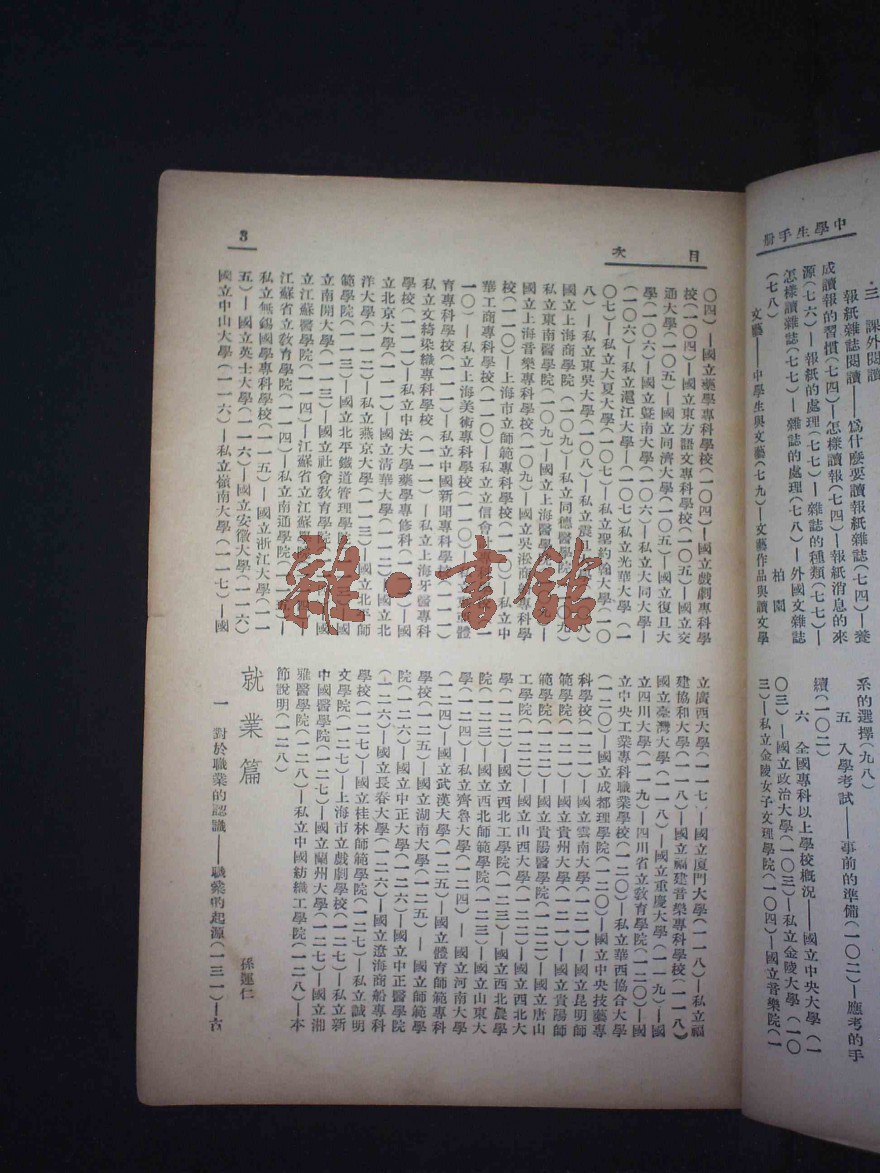 中學生手册
三　課外閱讀
報紙雜誌閱讀——爲什麽要讀報紙雜誌(七四)—養
成讀報的習慣(七四)—怎樣讀報(七四)—報紙消息的來
源(七六)—報紙的處理(七七)—雜誌的種類(七七)—
怎樣讀雜誌(七七)—雜誌的處理(七八)—外國文雜誌
(七八)
柏園
文藝——中學生與文藝(七九)—文藝作品與讀文學
系的選擇(九八)
五　入學考試——事前的準備(一〇二)—應考的手
續(一〇二)
六　全國專科以上學校槪況——國立中央大學(一
〇三)—國立政治大學(一〇三)—私立金陵大學(一〇
三)—私立金陵女子文理學院(一〇四)—國立音樂院(一
目次
3
〇四)—國立藥學專科學校(一〇四)—國立戲劇專科學
校(一〇四)—國立東方語文專科學校(一〇五)—國立交
通大學(一〇五)—國立同濟大學(一〇五)—國立復旦大
學(一〇六)—國立暨南大學(一〇六)—私立大同大學—
(一〇六)—私立滬江大學—(一〇七)私立光華大學(一
〇七)—私立大夏大學(一〇七)—私立聖約翰大學(一〇
八)—私立東吳大學(一〇八)—私立震
國立上海商學院(一〇九)—私立同德醫學院
私立東南醫學院(一〇九)—國立上海醫學
國立上海音樂專科學校(一〇九)—國立吳淞商
校(一一〇)—上海市立師範專科學校(一一〇)—私立中
華工商專科學校(一一〇)—私立立信會計
一〇)—私立上海美術專科學校(一一
育專科學校(一一一)—私立中國新聞專科學校
私立文綺染織專科學校(一一一)—私立上海牙醫專科
學校(一一一)—私立中法大學藥學專修科(一
立北京大學(一一二)—國立淸華大學(一一二)—國立北
洋大學(一一二)—私立燕京大學(一一三)—國立北平師
範學院(一一三)—國立北平鐵道管理學院
立南開大學(一一三)—國立社會敎育學院
立江蘇醫學院(一一四)—江蘇省立江蘇
江蘇省立敎育學院(一一四)—私立南通學院(一一五)—
私立無錫國學專科學校(一一五)—國立浙江大學(一一
五)—國立英士大學(一一六)—國立安徽大學(一一六)
國立中山大學(一一六)—私立嶺南大學(一一七)—國
立廣西大學(一一七)—國立廈門大學(一一八)—私立福
建協和大學(一一八)—國立福建音樂專科學校(一一八)
國立臺灣大學(一一八)—國立重慶大學(一一九)—國
立四川大學(一一九)—四川省立敎育學院(一二〇)—國
立中央工業專科職業學校(一二〇)—私立華西協合大學
(一二〇)—國立成都理學院(一二〇)—國立中央技藝專
科學校(一二一)—國立雲南大學(一二一)—國立昆明師
範學院(一二一)—國立貴州大學(一二一)—國立貴陽師
範學院(一二二)—國立貴陽醫學院(一二二)—國立唐山
工學院(一二二)—國立山西大學(一二二)—國立西北大
學(一二二)—國立西北工學院(一二三)—國立西北農學
院(一二三)—國立西北師範學院(一二三)—國立山東大
學(一二四)—私立齊魯大學(一二四)—國立河南大學
(一二四)—國立武漢大學(一二五)—國立體育師範專科
學校(一二五)—國立湖南大學(一二五)—國立師範學
院(一二六)—國立中正大學(一二六)—國立中正醫學院
(一二六)—國立長春大學(一二六)—國立遼海商船專科
學校(一二七)—國立桂林師範學院(一二七)—私立誠明
文學院(一二七)—上海市立戲劇學校(一二七)—私立新
中國醫學院(一二七)—國立蘭州大學(一二七)—國立湘
雅醫學院(一二八)—私立中國紡織工學院(一二八)—本
節說明(一二八)
就業篇
孫運仁
一　對於職業的認識——職業的起源(一三一)—古
雜·書館